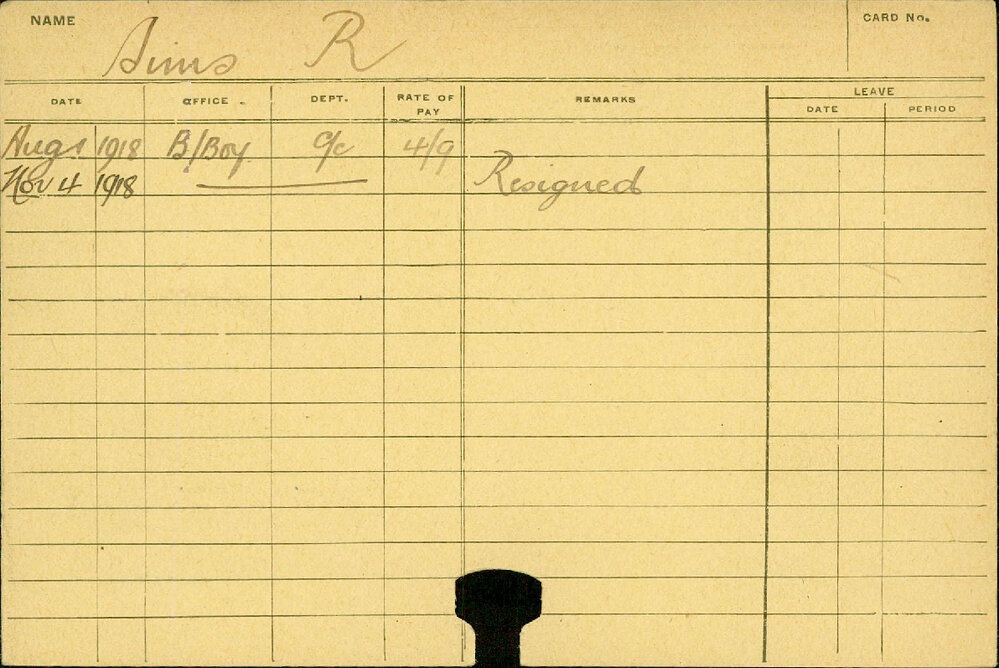 NAME Sims R CARD No.
DATE OFFICE DEPT. RATE OF PAY REMARKS LEAVE
DATE PERIOD
Aug 1 1918 B/Boy C/c 4/9
Nov 4 1918 Resigned